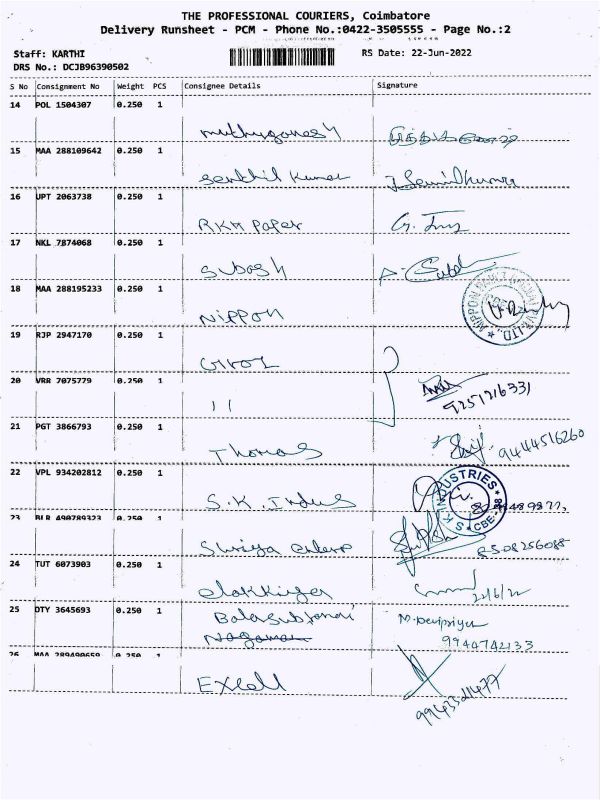 THE PROFESSIONAL COURIERS, Coimbatore
Delivery Runsheet - PCM - Phone No.:0422-3505555 - Page No.:2
Staff: KARTHI RS Date: 22-Jun-2022
DRS No.: DCJB96390502
S No Consignment No Weight PCS Consignee Details Signature
14 POL 1504307 0.250 1
muthuganesh
15 MAA 288109642 0.250 1
Senthil Kumar
16 UPT 2063738 0.250 1
RKM Paper
17 NKL 7874068 0.250 1
Subash
18 MAA 288195233 0.250 1
Nippon
19 RJP 2947170 0.250 1
20 VRR 7075779 0.250 1
11 9251216331
21 PGT 3866793 0.250 1
Thomas 9444516260
22 VPL 934202812 0.250 1
S.K. Indus
S K INDUSTRIES CBE
23 BLR 490789323 0.250 1
Suriya
24 TUT 6073903 0.250 1
elakkiya 22/6/22
25 DTY 3645693 0.250 1
M. Devipriya
9944742133
26 MAA 289490659 0.250 1
Excell